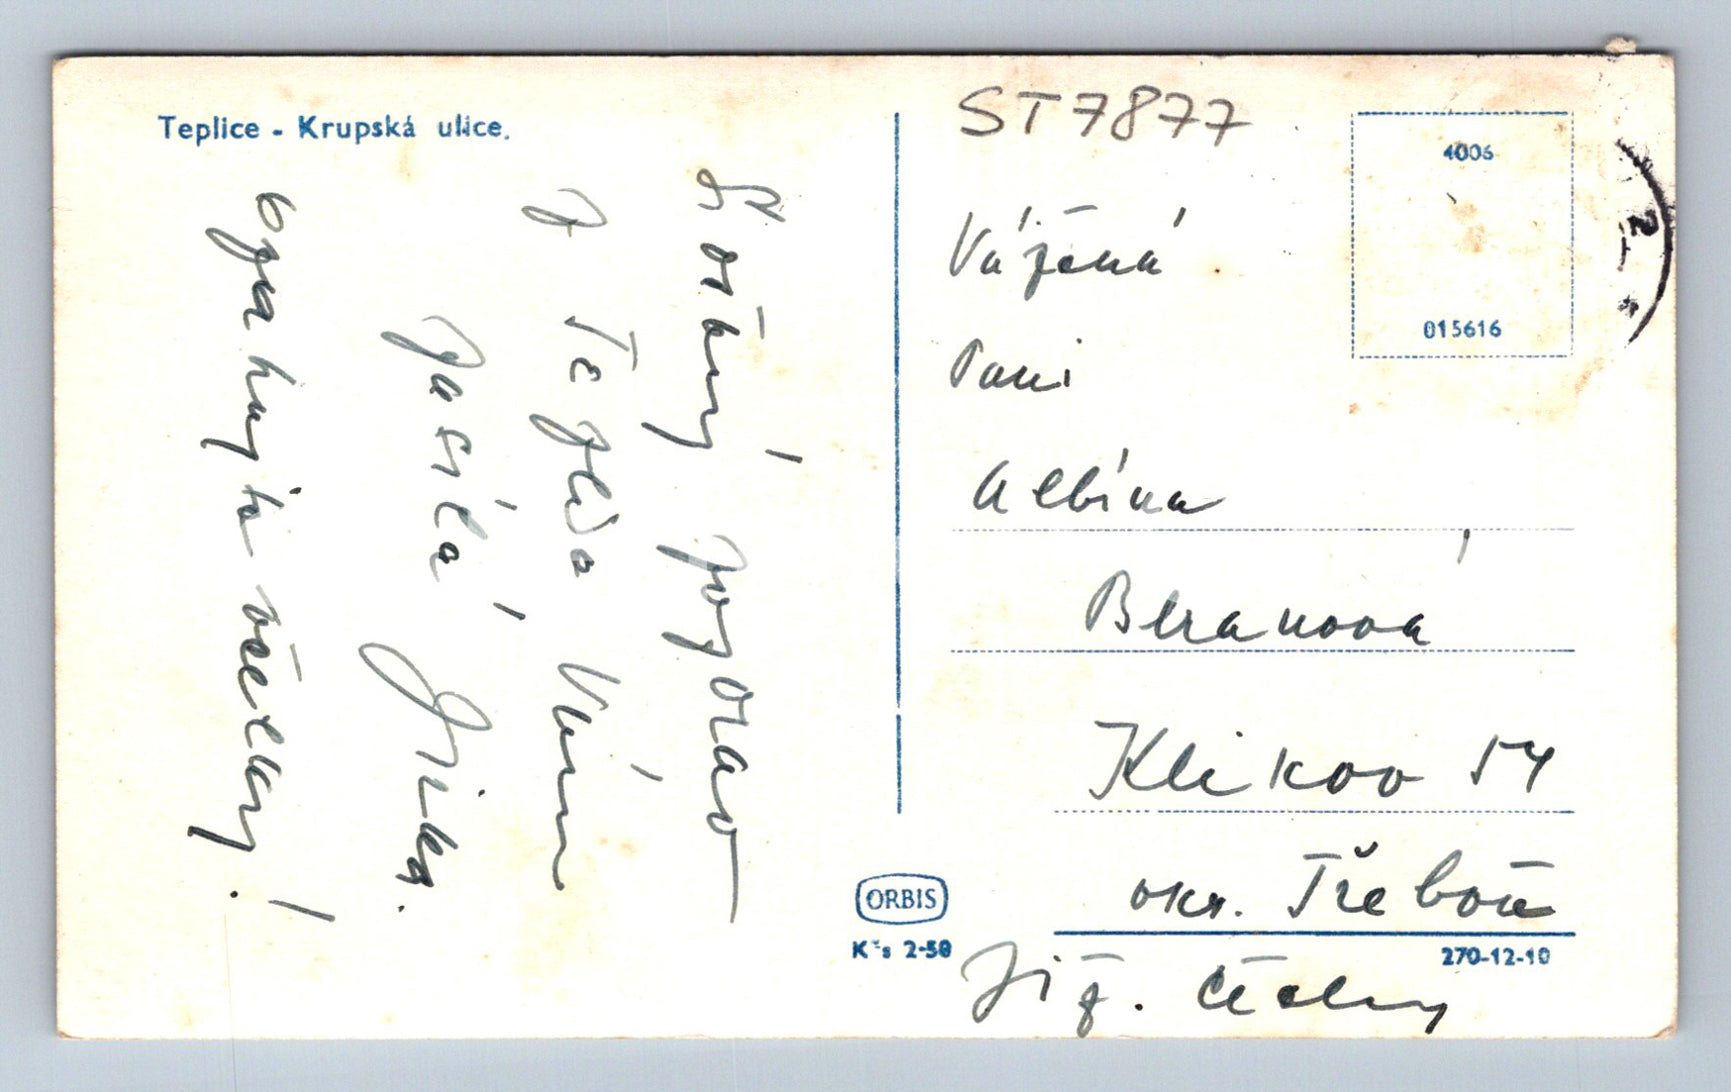 Teplice - Krupská ulice.
Srdečný pozdrav
z Teplic Vám
zasílá Jirka.
ST7877
4006
015616
2
Vážená
Paní
Albína
Beranová
Klikov 54
okr. Třeboň
Již. Čechy
ORBIS
Kčs 2·50
270-12-10